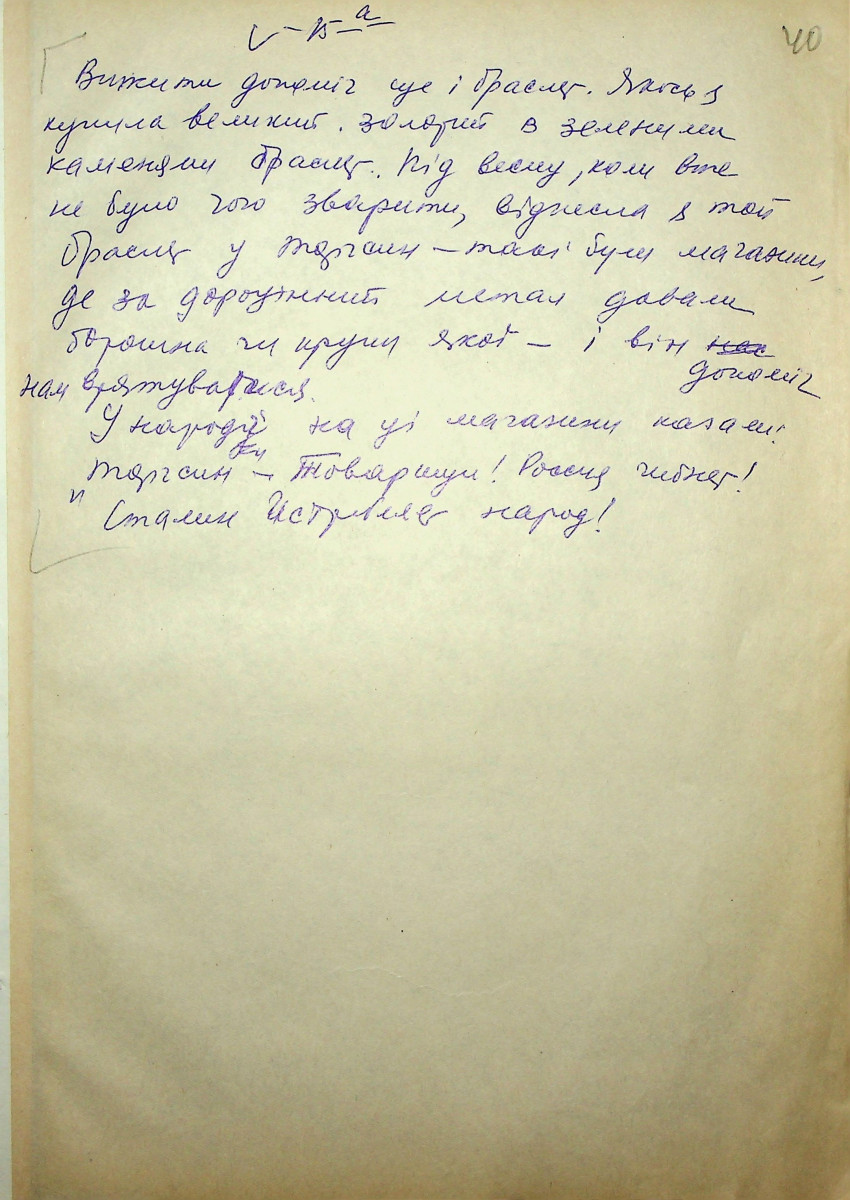 – 15 – а
40
Вижити допоміг ще і браслет. Якось я
купила великий. золотий з зеленими
каменями браслет. Під весну, коли вже
не було чого зварити, віднесла я той
браслет у торгсин – такі були магазини,
де за дорогоцінний метал давали
борошна чи крупи якої – і він нас
допоміг
нам врятуватися.
У народі на ці магазини казали:
Торгсин – Товарищи! Россия гибнет!
Сталин Истребляет народ!